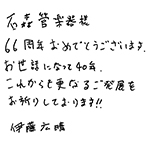 石森管楽器様
66周年おめでとうございます。
お世話になって40年、
これからも更なるご発展を
お祈りしております!!
伊藤広晴